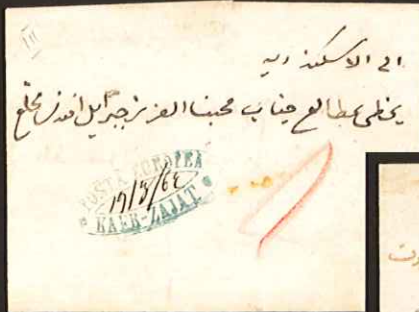 III
الى الاسكندريه
يحظى بمطالع جناب محبنا العزيز جبرايل افندى مخلع
POSTA EUROPEA
19/3/64
KAFR-ZAJAT